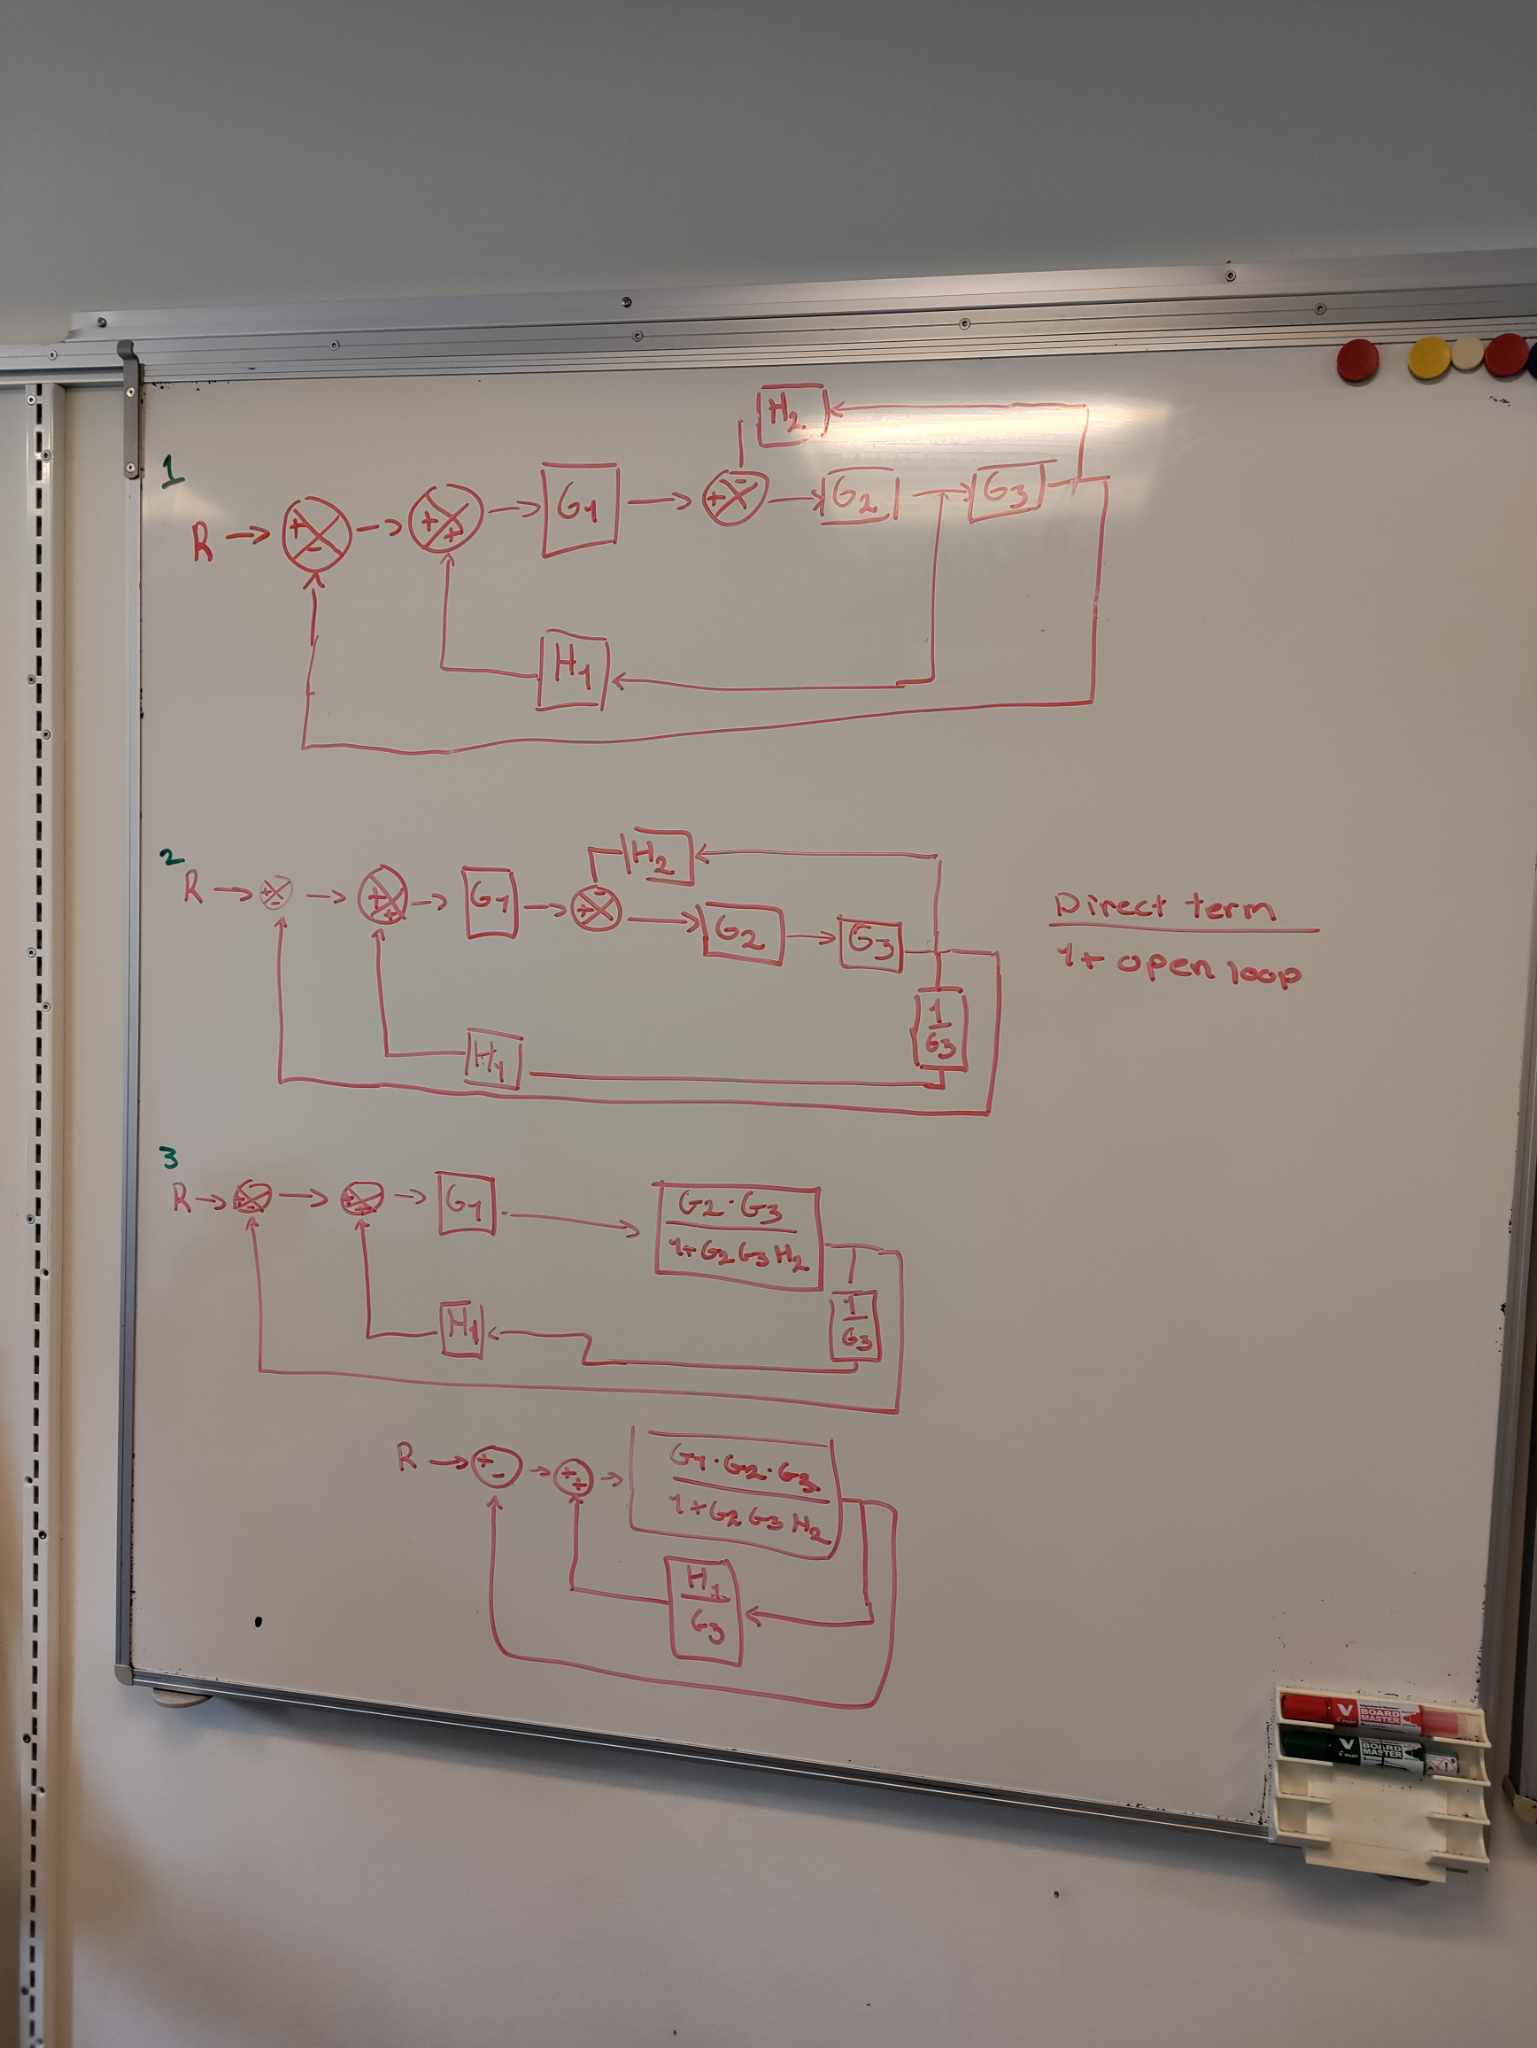 1
H2
R → + - → + + → G1 → + - → G2 → G3
H1
2
H2
R → + - → + + → G1 → + - → G2 → G3
Direct term
1+ open loop
1
G3
H1
3
R → + - → + + → G1 →
G2 · G3
1+G2 G3 H2
1
G3
H1
R → + - → + + →
G1 · G2 · G3
1+G2 G3 H2
H1
G3
V BOARD MASTER
V BOARD MASTER